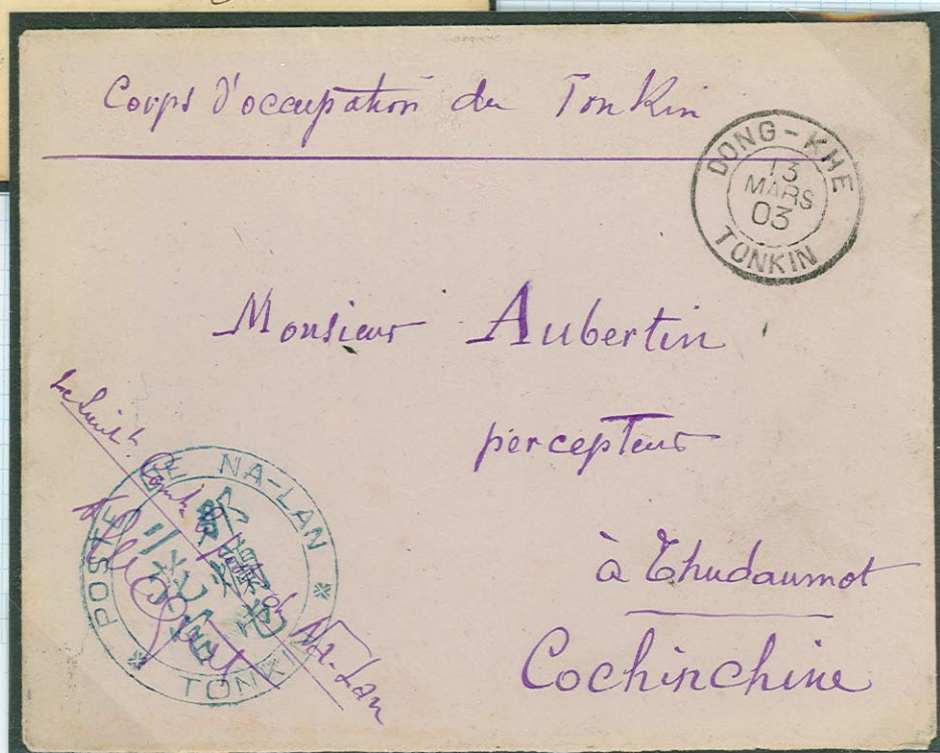 Corps d'occupation du Tonkin
DONG-KHE
13
MARS
03
TONKIN
Monsieur Aubertin
percepteur
à Thudaumot
Cochinchine
Le Lieut.
Na-Lan
POSTE DE NA-LAN
TONKIN